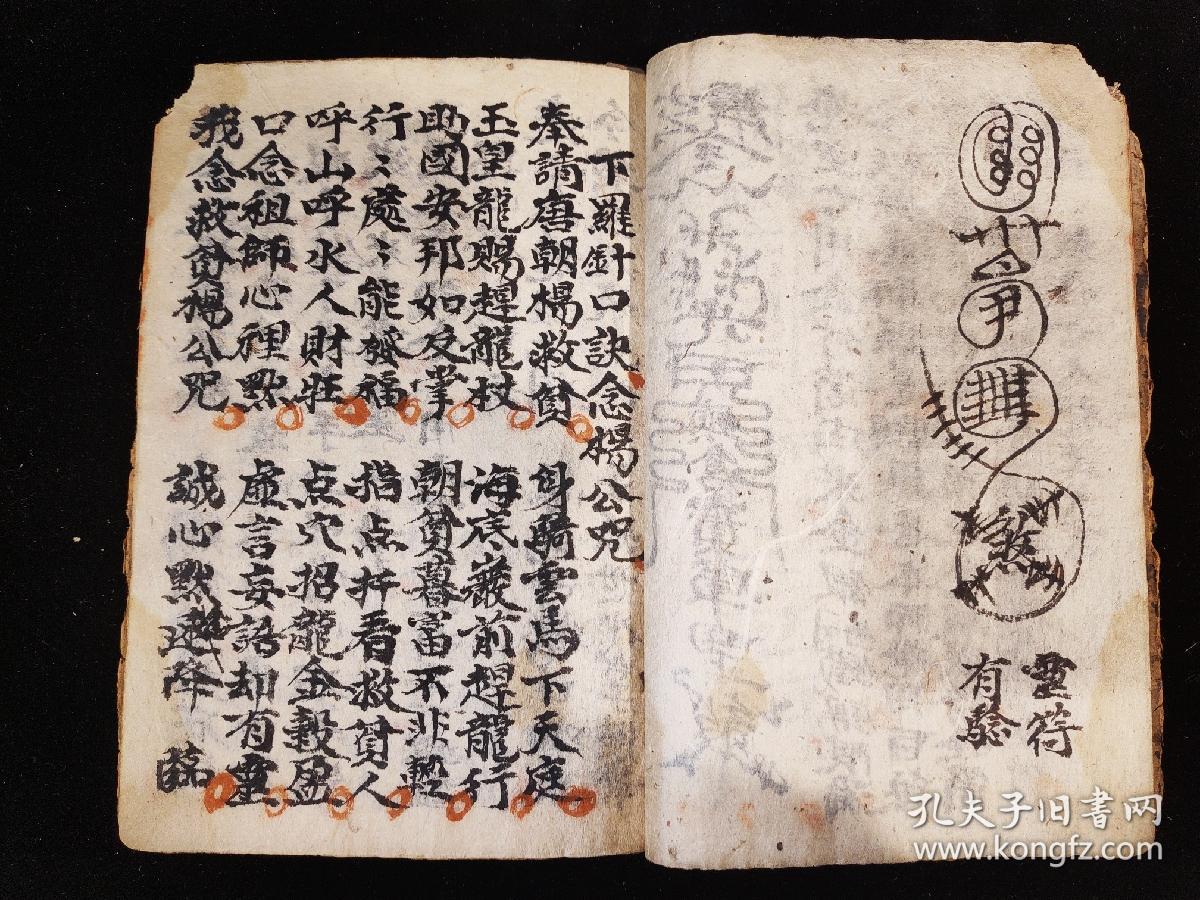 靈符
有驗
下羅針口訣念楊公咒
奉請唐朝楊救貧 身騎雲馬下天庭
玉皇龍賜趕龍杖 海底巖前趕龍行
助國安邦如反掌 朝貧暮富不非輕
行〻處〻能發福 指点扦看救貧人
呼山呼水人財旺 点穴招龍金穀盈
口念祖師心裡默 虛言妄語却有靈
我念救貧楊公咒 誠心默 降臨
煞
孔夫子旧书网
www.kongfz.com